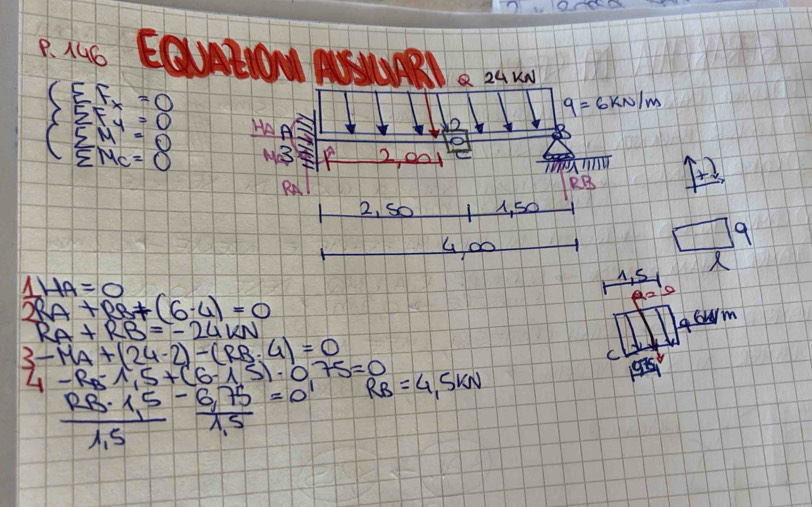 P. 146 EQUAZIONI AUSILIARI
Q 24 KN
q = 6 KN/m
Σ Fx = 0
Σ Fy = 0
Σ M = 0
Σ MC = 0
HA A
MA 3
RA
2
C
B
RB
2,00
2,50 1,50
4,00
+
q
l
1 HA = 0
2 RA + RB + (6·4) = 0
RA + RB = -24 KN
3 - MA + (24·2) - (RB·4) = 0
4 - RB·1,5 + (6·1,5)·0,75 = 0
RB·1,5 - 6,75 = 0
1,5 1,5
RB = 4,5 KN
1,5
q 6 KN/m
C
0,75